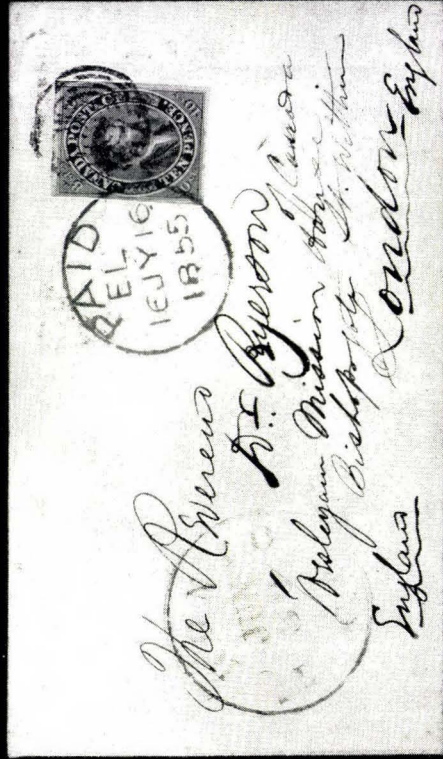 CANADA POSTAGE
TEN PENCE
PAID
EL
1EJY16
1855
The Reverend
Dr. Ryerson
of Canada
Wesleyan Mission House
Bishopsgate St. Within
London
England
England